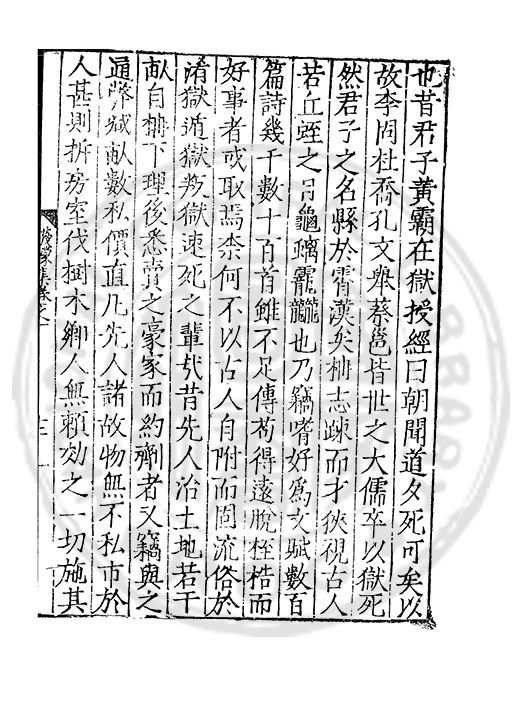 也昔君子黃霸在獄授經曰朝聞道夕死可矣以
故李固杜喬孔文舉蔡邕皆世之大儒卒以獄死
然君子之名縣於霄漢矣柟志疎而才狹視古人
若丘蛭之吊龜螭靇巃也乃竊嗜好為文賦數百
篇詩幾千數十百首雖不足傳苟得遠脫桎梏而
好事者或取焉柰何不以古人自附而固流俗於
淆獄遁獄殀獄速死之輩哉昔先人治土地若干
畝自柟下理後悉賣之豪家而約劑者又竊與之
通弊減畝數私價直凡先人諸故物無不私市於
人甚則拆房室伐樹木鄉人無賴効之一切施其
集卷之一